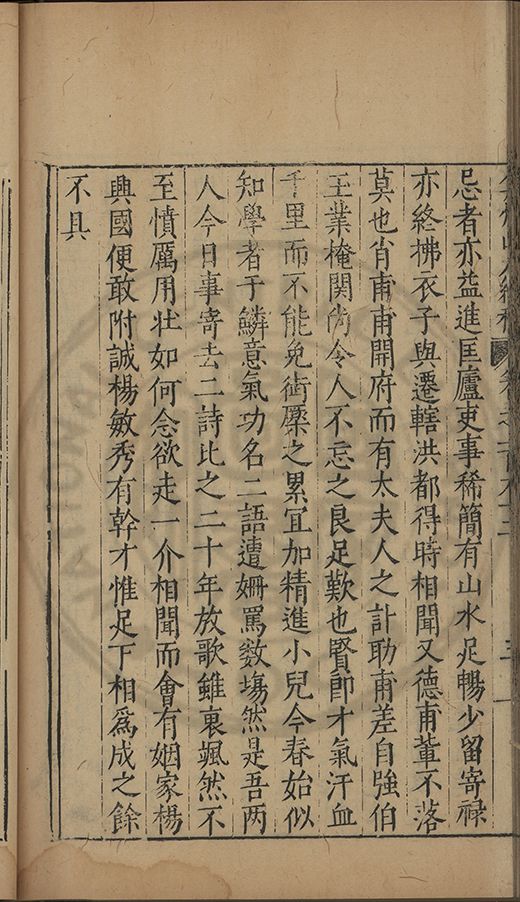 忌者亦益進匡廬吏事稀簡有山水足暢少留寄祿
亦終拂衣子與遷轄洪都得時相聞又德甫輩不落
莫也肖甫甫開府而有太夫人之計助甫差自強伯
玉業掩関尚令人不忘之良足歎也賢郎才氣汗血
千里而不能免銜橜之累宜加精進小兒今春始似
知學者于鱗意氣功名二語遭姍罵数塲然是吾两
人今日事寄去二詩比之二十年放歌雖衷颯然不
至憤厲用壮如何念欲走一介相聞而會有姻家楊
興國便敢附誠楊敏秀有幹才惟足下相爲成之餘
不具